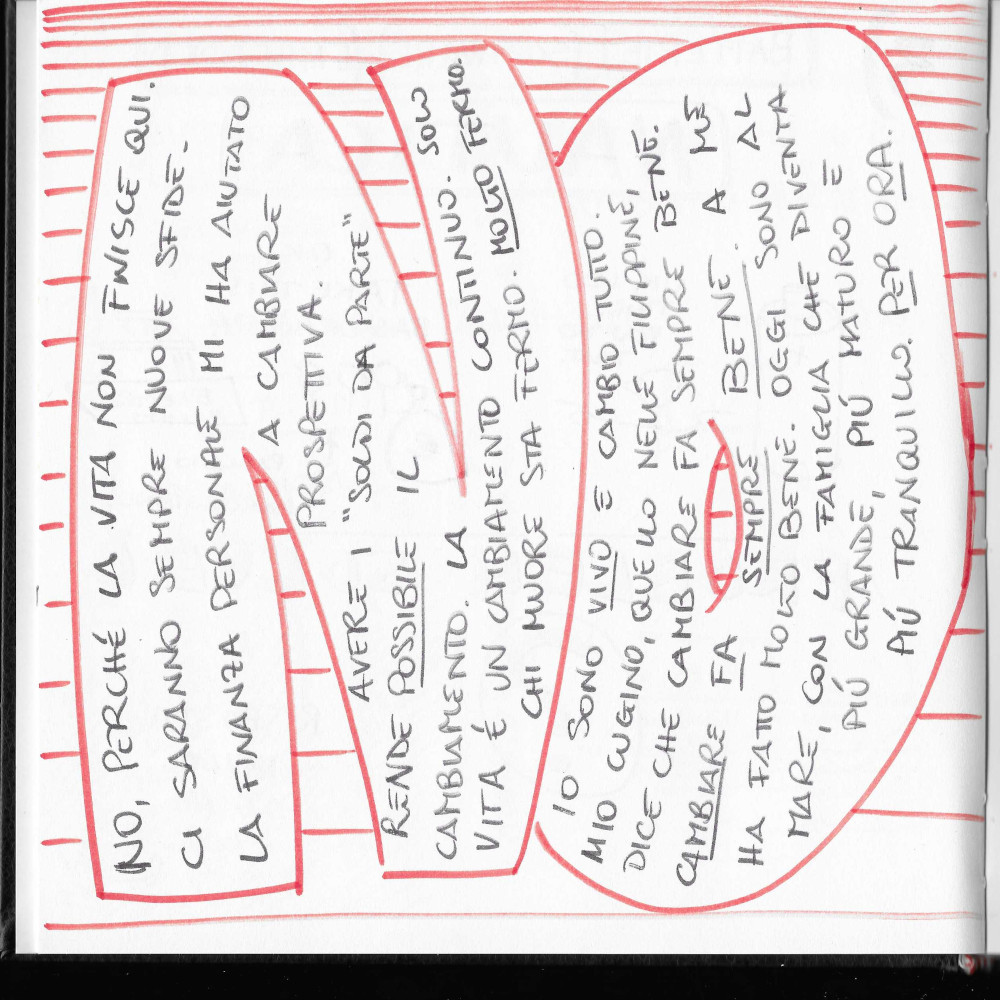 NO, PERCHÉ LA VITA NON FINISCE QUI.
CI SARANNO SEMPRE NUOVE SFIDE.
LA FINANZA PERSONALE MI HA AIUTATO
A CAMBIARE
PROSPETTIVA.
AVERE I "SOLDI DA PARTE"
RENDE POSSIBILE IL
CAMBIAMENTO. LA CONTINUO. SOLO
VITA É UN CAMBIAMENTO MOLTO FERMO.
CHI MUORE STA FERMO.
IO SONO VIVO E CAMBIO TUTTO.
MIO CUGINO, QUELLO NELLE FILIPPINE,
DICE CHE CAMBIARE FA SEMPRE BENE.
CAMBIARE FA SEMPRE BENE. A ME
HA FATTO MOLTO BENE. OGGI SONO AL
MARE, CON LA FAMIGLIA CHE DIVENTA
PIÚ GRANDE, PIÚ MATURO E
PIÚ TRANQUILLO. PER ORA.